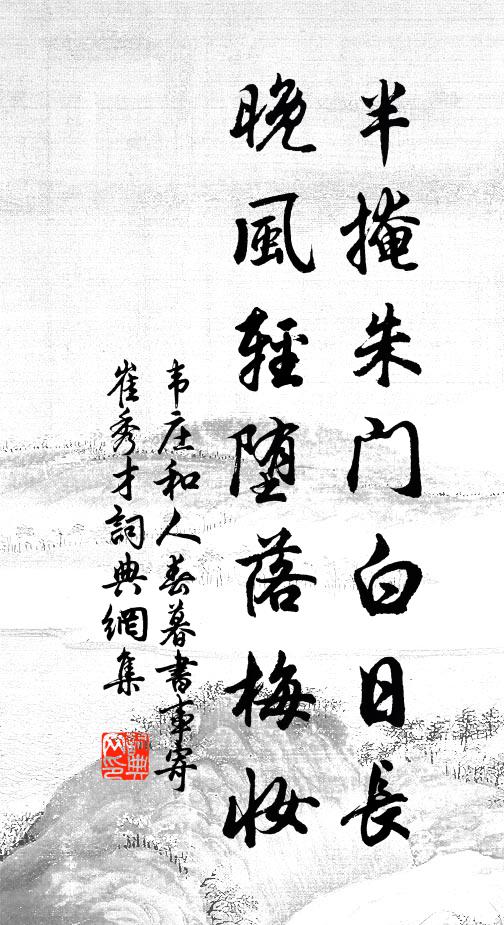 半掩朱門白日長
晚風輕墮落梅妝
韦庄和人春暮書事寄
崔秀才詞典網集